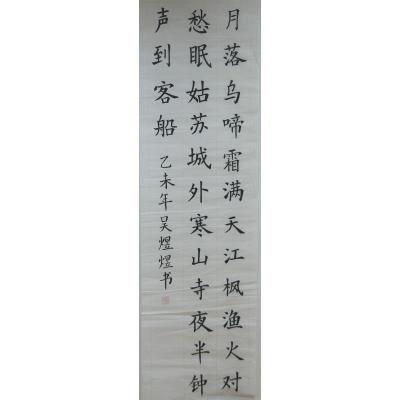 月落乌啼霜满天江枫渔火对
愁眠姑苏城外寒山寺夜半钟
声到客船
乙未年吴煜煜书